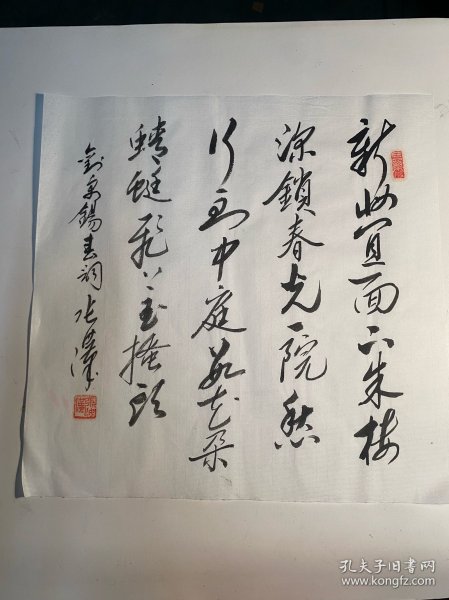 新妝宜面下朱楼
深鎖春光一院愁
行到中庭数花朵
蜻蜓飛上玉搔頭
劉禹錫春詞 张
孔夫子旧书网
www.kongfz.com